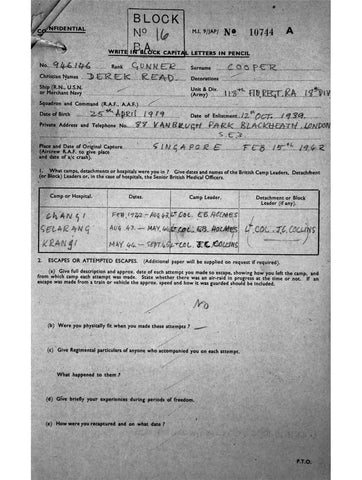 CONFIDENTIAL
BLOCK
Nº 16
P.A.
M.I. 9/JAP/ Nº 10744 A
WRITE IN BLOCK CAPITAL LETTERS IN PENCIL
No. 946146 Rank GUNNER Surname COOPER
Christian Names DEREK READ Decorations
Ship (R.N., U.S.N. or Merchant Navy) Unit & Div. (Army) 118th FD. REGT. RA 18th DIV
Squadron and Command (R.A.F., A.A.F.)
Date of Birth 25th APRIL 1919 Date of Enlistment 12th OCT. 1939
Private Address and Telephone No. 88 VANBRUGH PARK BLACKHEATH, LONDON
S.E.3
Place and Date of Original Capture SINGAPORE FEB 15th 1942
(Aircrew R.A.F. to give place
and date of a/c crash).
1. What camps, detachments or hospitals were you in? Give dates and names of the British Camp Leaders, Detachment
(or Block) Leaders or, in the case of hospitals, the Senior British Medical Officers.
Camp or Hospital. Dates. Camp Leader. Detachment or Block
Leader (if any).
CHANGI FEB, 1942 - AUG 43 Lt COL. E.B. HOLMES
SELARANG AUG. 43 - MAY. 44 COL. E.B. HOLMES Lt COL. J.C. COLLINS
KRANJI MAY. 44 - SEPT 45 Lt COL. J.C. COLLINS
2. ESCAPES OR ATTEMPTED ESCAPES. (Additional paper will be supplied on request if required).
(a) Give full description and approx. date of each attempt you made to escape, showing how you left the camp, and
from which camp each attempt was made. State whether there was an air-raid in progress at the time or not. If an
escape was made from a train or vehicle the approx. speed and how it was guarded should be included.
NO
(b) Were you physically fit when you made these attempts?
(c) Give Regimental particulars of anyone who accompanied you on each attempt.
What happened to them?
(d) Give briefly your experiences during periods of freedom.
(e) How were you recaptured and on what date?
P.T.O.